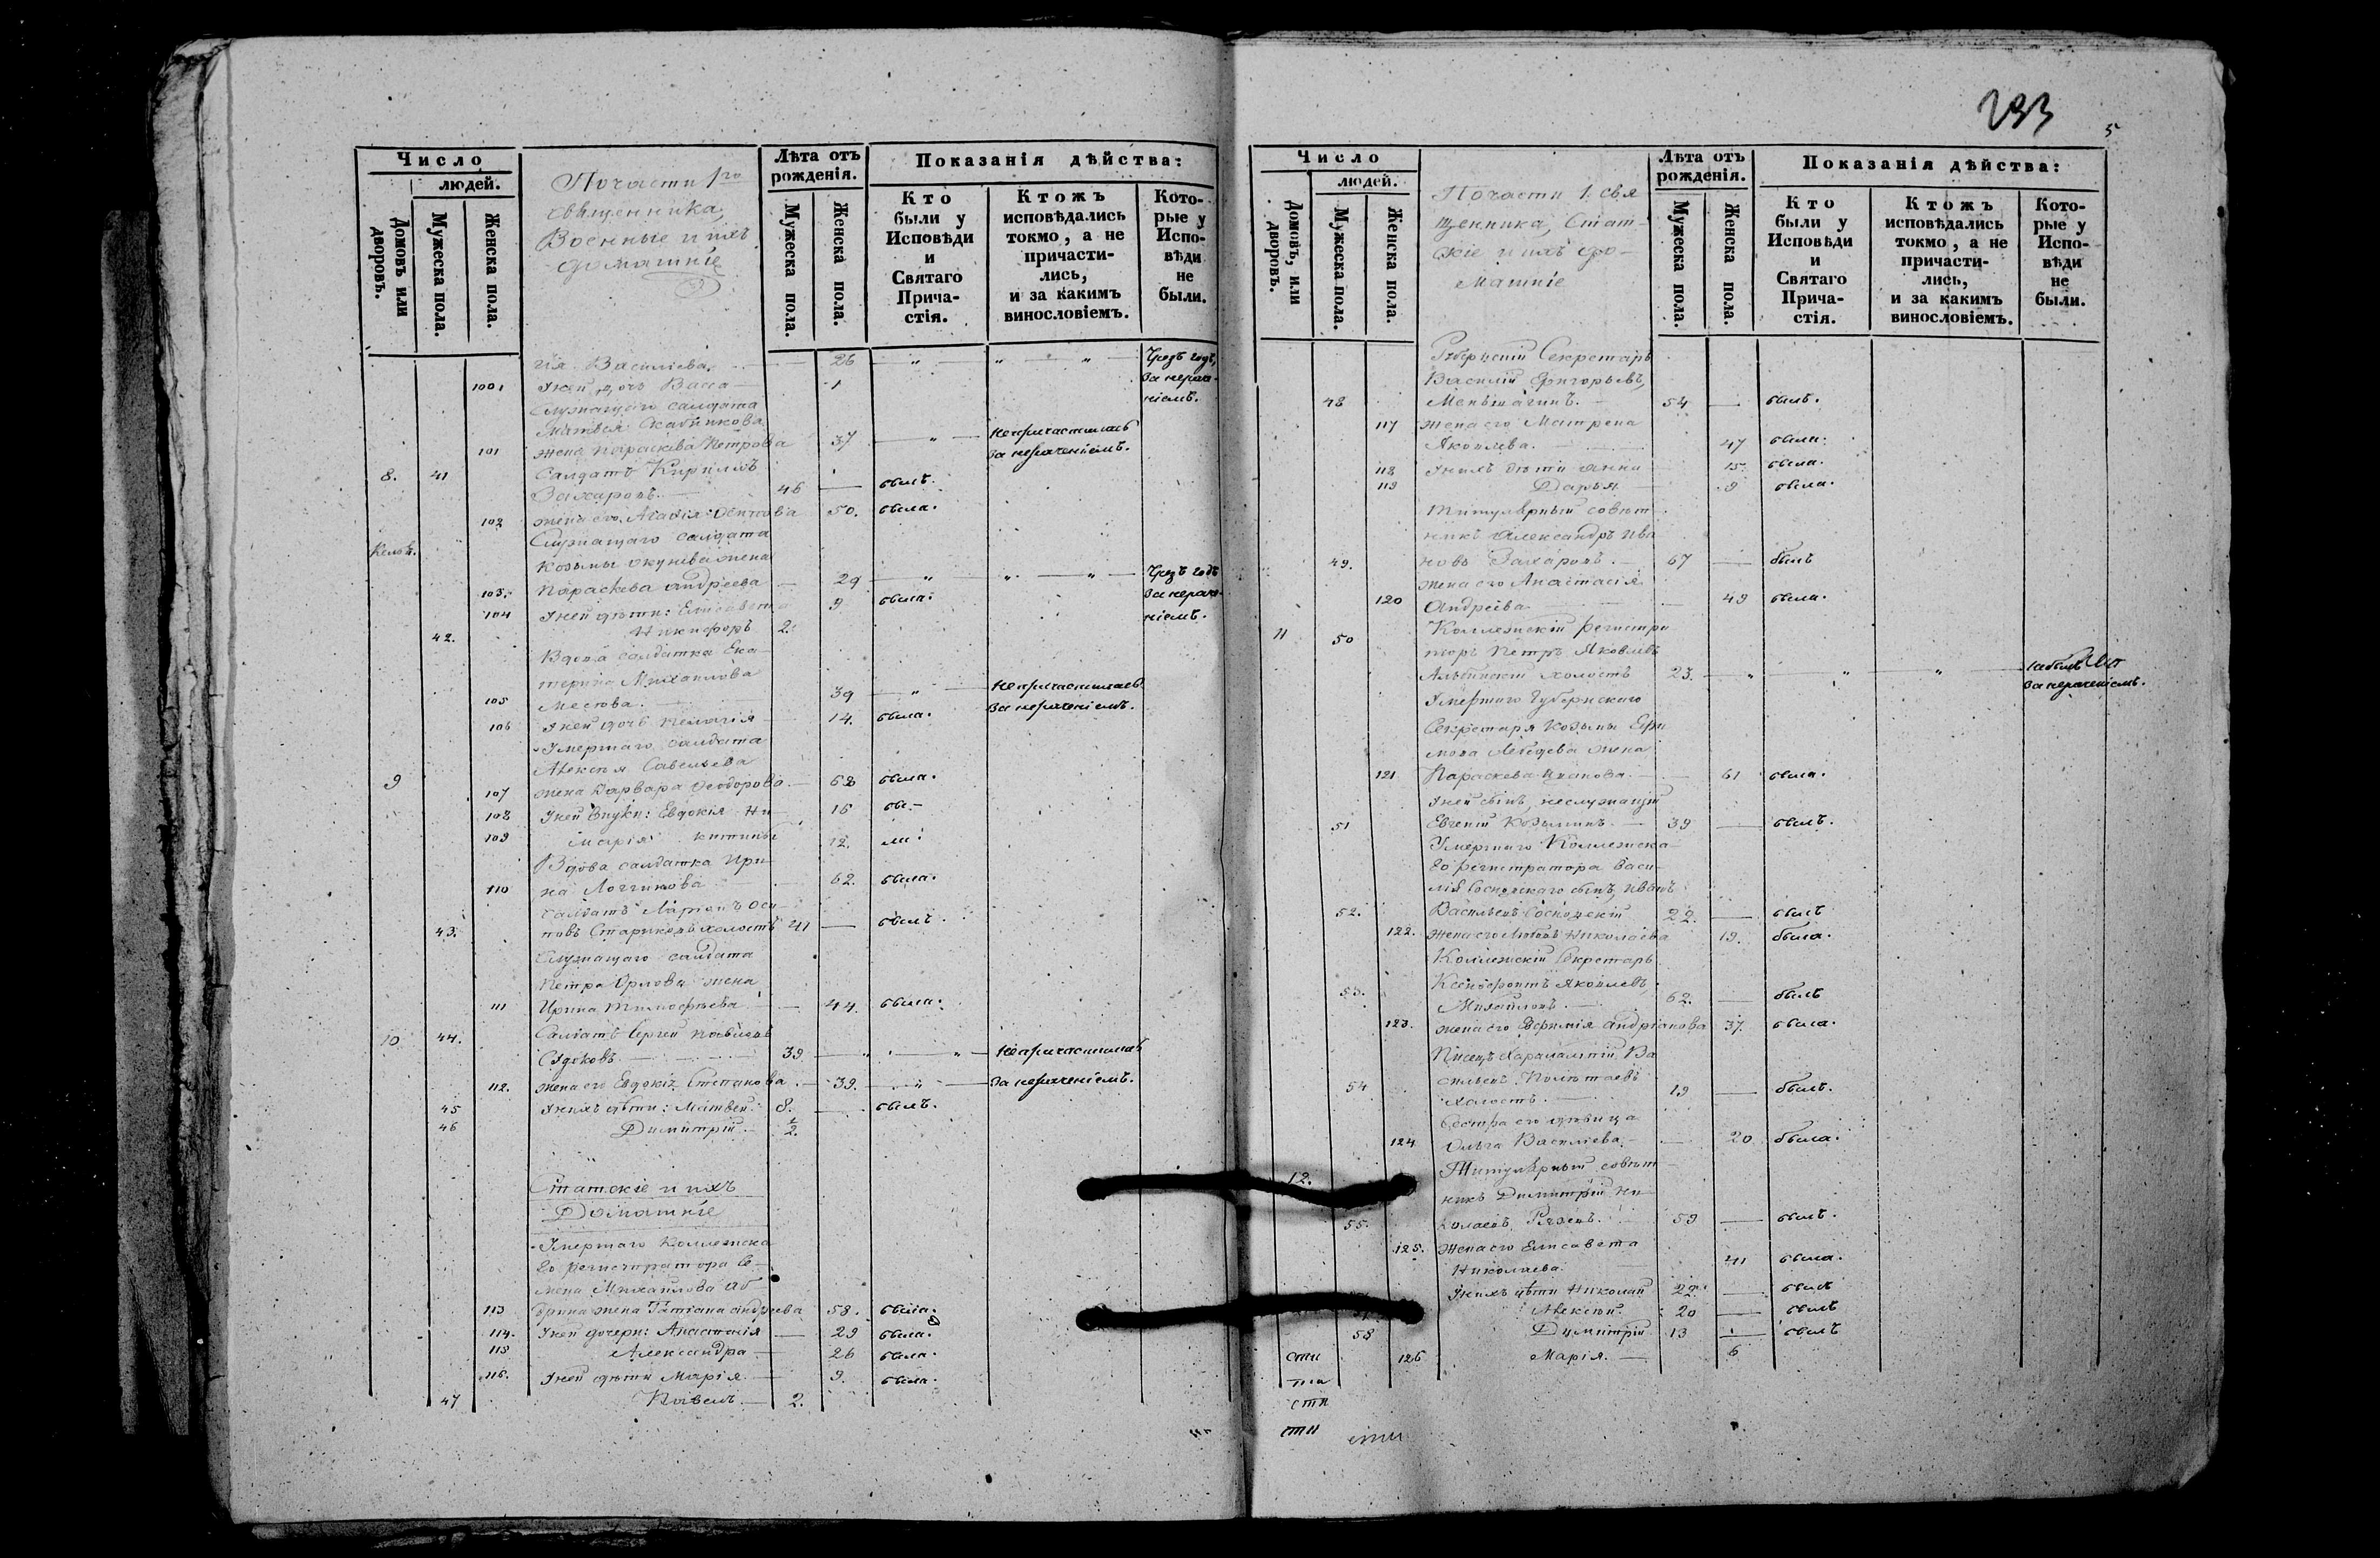 Число
людей.
Домовъ или дворовъ.
Мужеска пола.
Женска пола.
По части 1го
священника,
Военные и ихъ
домашніе
Лѣта отъ рожденія.
Мужеска пола.
Женска пола.
Показанія дѣйства:
Кто были у Исповѣди и Святаго Прича-стія.
Ктожъ исповѣдались токмо, а не причасти-лись, и за какимъ винословіемъ.
Кото-рые у Испо-вѣди не были.
Васильева. 26 Чрезъ годъ,
100 У ней дочь Васса 1 за нераче-
Служащаго салдата ніемъ.
101 жена Параскева Петрова 37 не причастилась за нераченіемъ.
8. 41 Салдатъ Кириллъ
Захаровъ. 46 былъ.
102 жена его Агафія Осипова 50. была.
Служащаго салдата
Козьмы жена
103. Параскева Андреева 29 Чрезъ годъ
104 У ней дѣти: Елисавета 9 была. за нераче-
42. Никифоръ 2. ніемъ.
Вдова салдатка Ека-
терина Михайлова
105 39 не причастилась
106 У ней дочь Пелагія 14. была. за нераченіемъ.
Умершаго салдата
Алексѣя Савельева
9 107 жена Варвара Ѳеодорова 68 была.
108 У ней внуки: Евдокія Ни- 16 бы-
109 Марія китины 12. ли.
Вдова салдатка Ири-
110 на Логгинова 62. была.
Салдатъ Ларіонъ Оси-
43. повъ Стариковъ холостъ 41 былъ.
Служащаго салдата
Петра Орлова жена
111 Ирина Тимофѣева 44. была.
10 44. Салдатъ Сергей Павловъ
39 не причастились
112. жена его Евдокія Степанова 39. за нераченіемъ.
45 У нихъ дѣти: Матвей 8. былъ.
46 Димитрій 1/2.
Статскіе и ихъ
Домашніе
Умершаго Коллежска-
го регистратора Се-
мена Михайлова
113 жена Татіана Андреева 58. была.
114. У ней дочери: Анастасія 29 была.
115 Александра 26 была.
116. У ней дѣти Марія 9. была.
47 Павелъ 2.
233
5
Число
людей.
Домовъ, или дворовъ.
Мужеска пола.
Женска пола.
По части 1. свя
щенника, Стат-
скіе и ихъ до-
машніе
Лѣта отъ рожденія.
Мужеска пола.
Женска пола.
Показанія дѣйства:
Кто были у Исповѣди и Святаго Прича-стія.
Ктожъ исповѣдались токмо, а не причасти-лись, и за какимъ винословіемъ.
Кото-рые у Испо-вѣди не были.
Губернскій Секретарь
Василій Григорьевъ
48 Меньшагинъ. 54 былъ.
117 жена его Матрена
Яковлева. 47 была.
118 У нихъ дѣти Анна 15. была.
119 Дарья 9 была.
Титулярный совѣт-
никъ Александръ Ива
49. новъ Захаровъ. 67 былъ
жена его Анастасія
120 Андреева 49 была.
11 50 Коллежскій регистра
торъ Петръ Яковлевъ
холостъ 23. не былъ
Умершаго Губернскаго за нераченіемъ.
Секретаря Козьмы Ефи
мова Лебедева жена
121 Параскева Иванова. 61 была.
У ней сынъ, неслужащій
51 Евгеній Козьминъ. 39 былъ.
Умершаго Коллежска-
го регистратора Васи-
лія сынъ, Иванъ
52. Васильевъ 22. былъ
122. жена его Любовь Николаева 19. была.
Коллежскій Секретарь
53. Ксенофонтъ Яковлевъ
Михайловъ. 62. былъ
123. жена его Евфимія Андріанова 37. была.
Писецъ Харалампій Ва
54 сильевъ
холостъ. 19 былъ.
Сестра его дѣвица
124 Ольга Васильева 20 была.
12. Титулярный совѣт-
никъ Димитрій Ни-
55. колаевъ 59 былъ.
125. жена его Елисавета
Николаева. 41 была.
У нихъ дѣти Николай 22. былъ
Алексѣй 20 былъ
58 Димитрій 13 былъ
126 Марія. 6